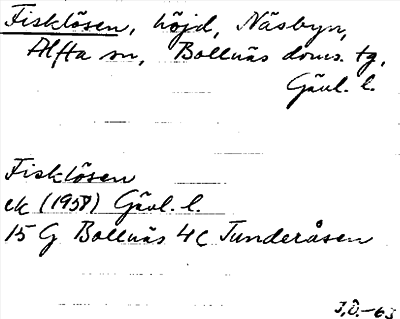 Fisklösen, höjd, Näsbyn,
Alfta sn, Bollnäs doms. tg,
Gävl. l.
Fisklösen
ek (1958) Gävl. l.
15 G Bollnäs 4c Tunderåsen
J,Ö.-63